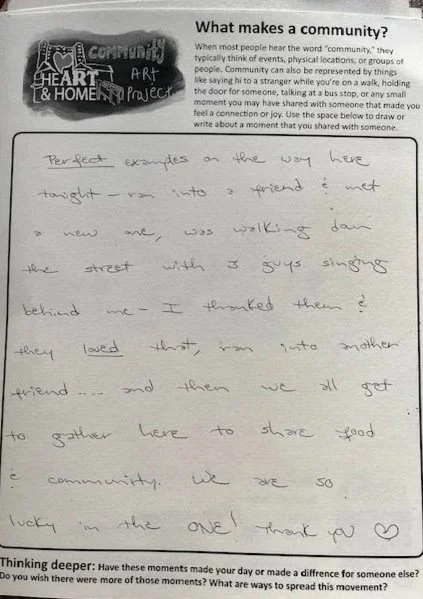 COMMUNITY
ART
Project
HEART
& HOME
What makes a community?
When most people hear the word "community," they
typically think of events, physical locations, or groups of
people. Community can also be represented by things
like saying hi to a stranger while you're on a walk, holding
the door for someone, talking at a bus stop, or any small
moment you may have shared with someone that made you
feel a connection or joy. Use the space below to draw or
write about a moment that you shared with someone.
Perfect examples on the way here
tonight – ran into a friend & met
a new one, was walking down
the street with 3 guys singing
behind me – I thanked them &
they loved that, ran into another
friend.... and then we all get
to gather here to share food
& community. We are so
lucky in the ONE! Thank you ♡
Thinking deeper: Have these moments made your day or made a diffrence for someone else?
Do you wish there were more of those moments? What are ways to spread this movement?